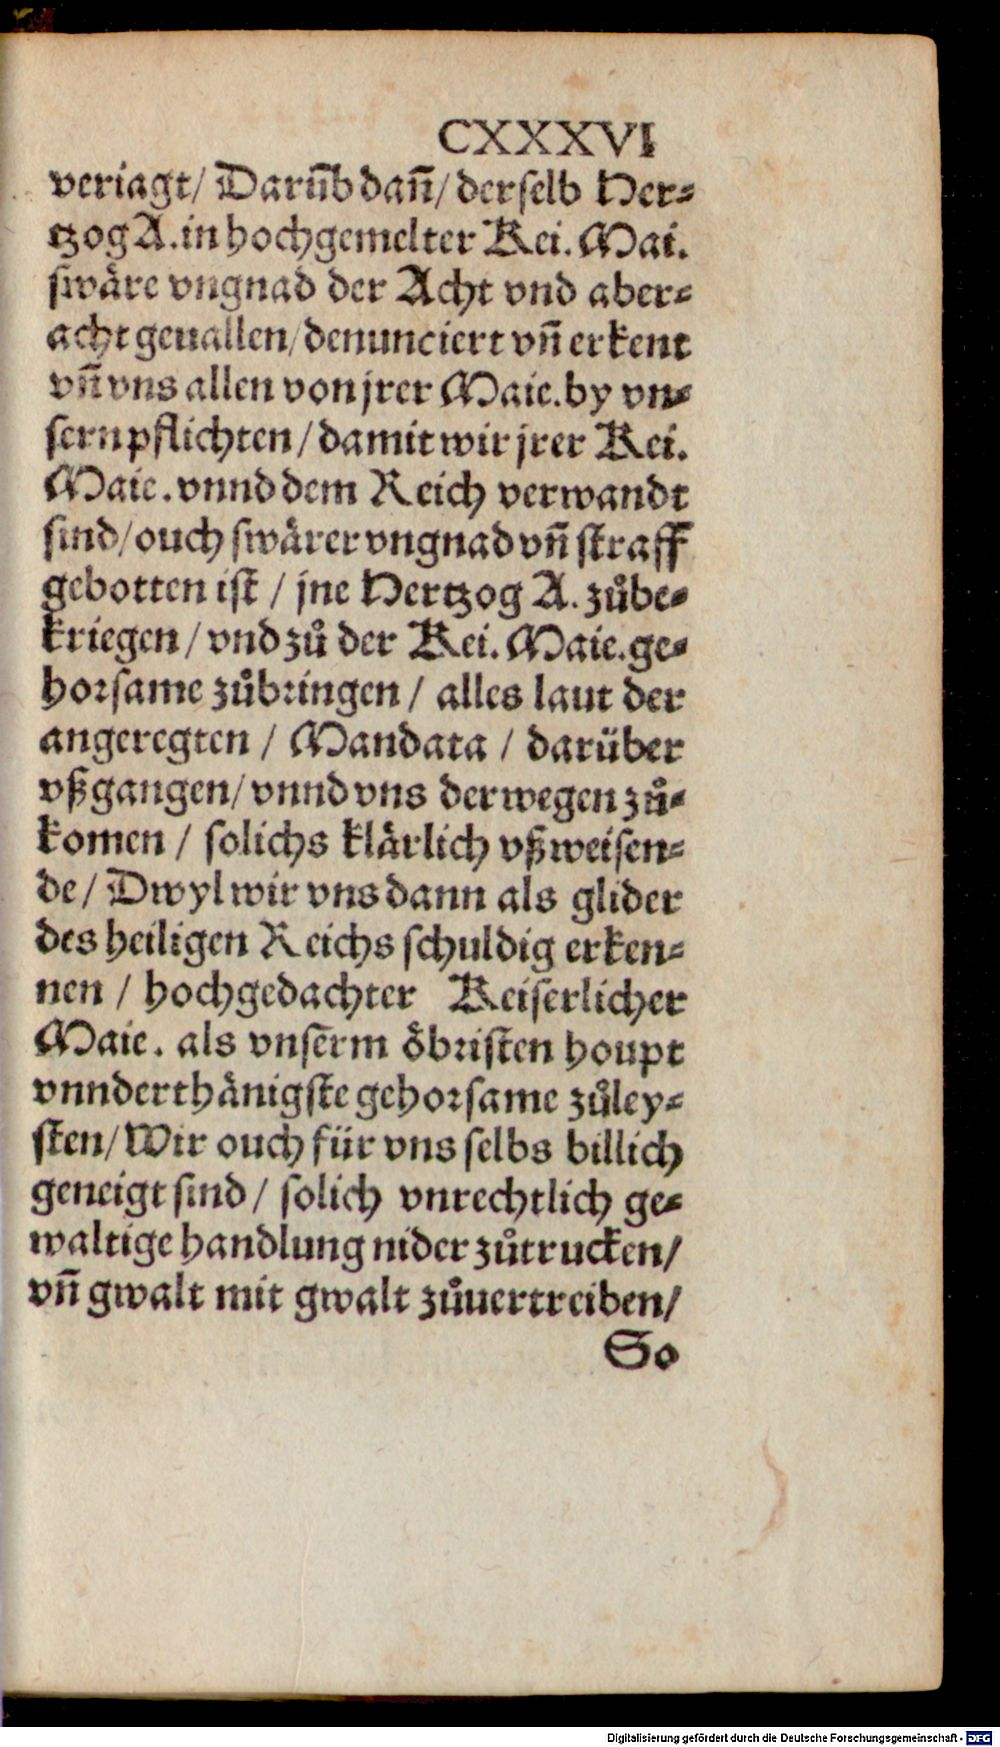 CXXXVI
veriagt/ Darum̄b dañ/ derselb Her⸗
tzog A. in hochgemelter Kei. Mai.
swåre vngnad der Acht vnd aber⸗
acht geuallen/ denunciert vñ erkent
vñ vns allen von jrer Maie. by vn⸗
sern pflichten/ damit wir jrer Kei.
Maie. vnnd dem Reich verwandt
sind/ ouch swårer vngnad vñ straff
gebotten ist / jne Hertzog A. zůbe⸗
kriegen/ vnd zů der Kei. Maie. ge⸗
horsame zůbringen / alles laut der
angeregten / Mandata / darüber
vßgangen/ vnnd vns derwegen zů⸗
komen / solichs klårlich vßweisen⸗
de/ Dwyl wir vns dann als glider
des heiligen Reichs schuldig erken⸗
nen / hochgedachter Keiserlicher
Maie. als vnserm öbristen houpt
vnnderthånigste gehorsame zůley⸗
sten/ Wir ouch für vns selbs billich
geneigt sind / solich vnrechtlich ge⸗
waltige handlung nider zůtrucken/
vñ gwalt mit gwalt zůuertreiben/
So
Digitalisierung gefördert durch die Deutsche Forschungsgemeinschaft - DFG